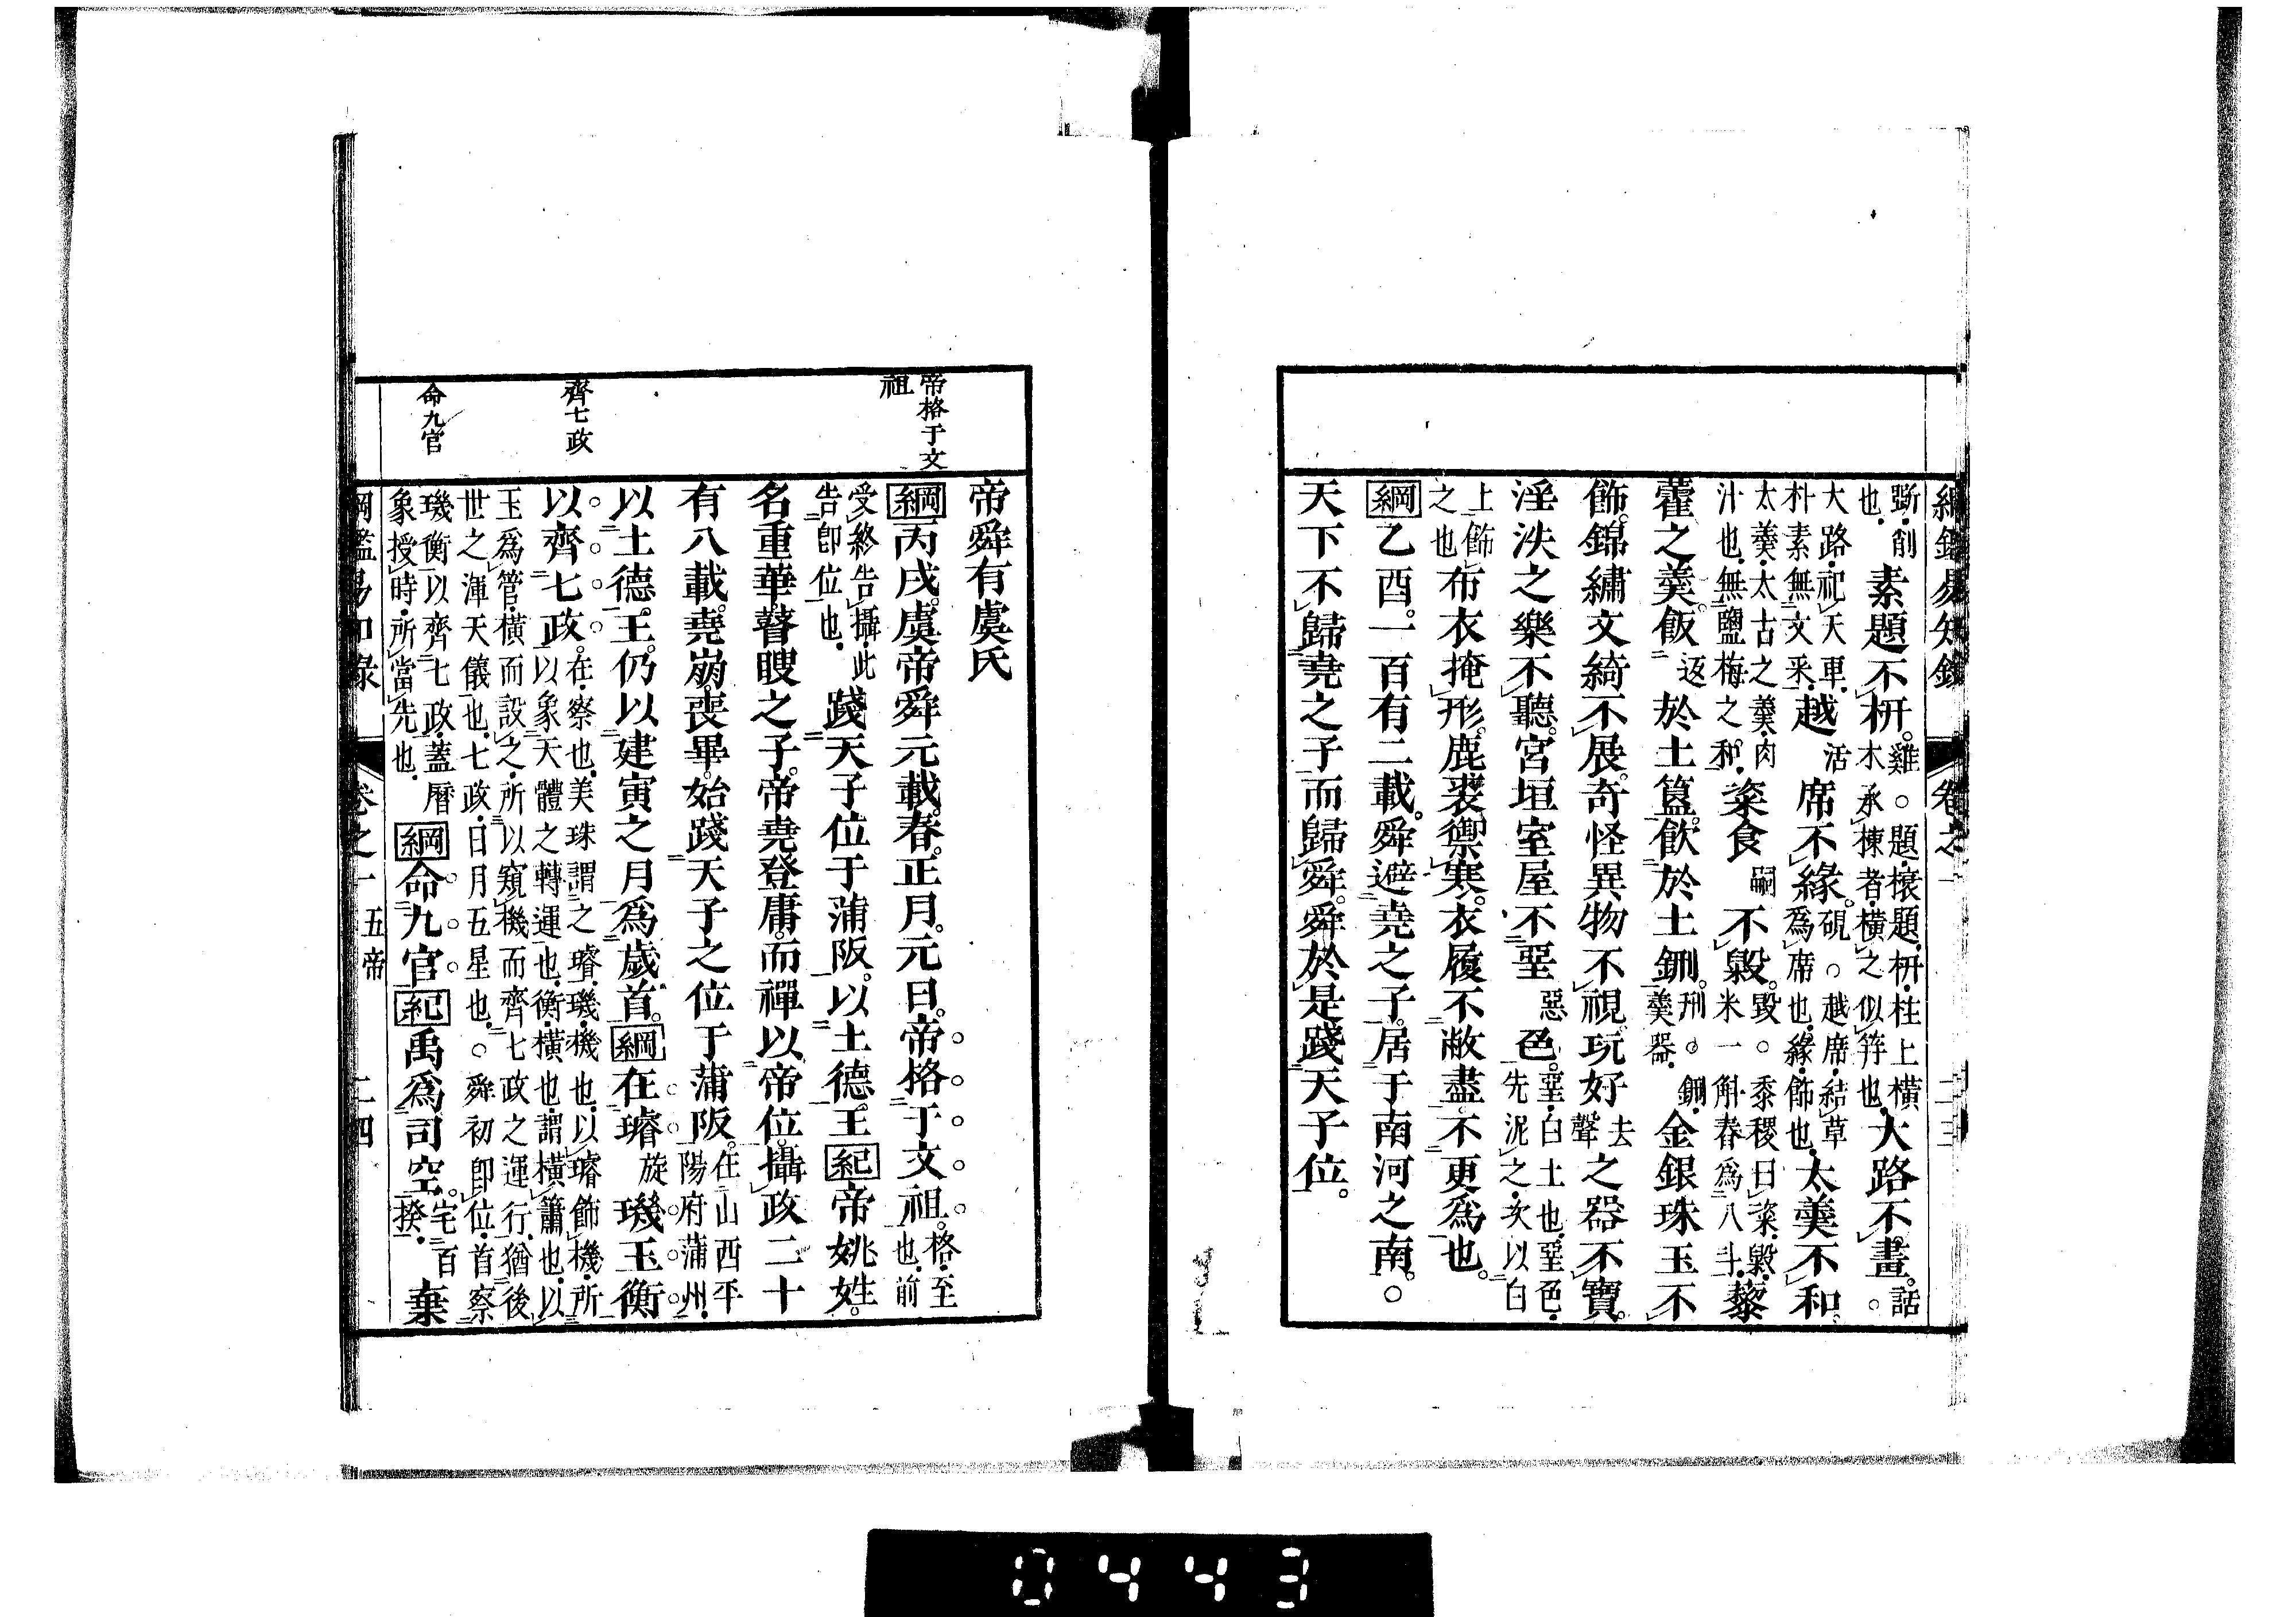 綱鑑易知錄 卷之一 二三
斲削也素題不枅雞○題榱題枅柱上橫木承棟者橫之似筓也大路不畫話○
大路祀天車朴素無文采越活席不緣硯○越席結草為席也緣飾也太羹不和
太羹太古之羹肉汁也無鹽梅之和粢食嗣不毇毀○黍稷曰粢毇米一斛舂為八斗藜
藿之羹飯返於土簋飲於土鉶刑○鉶羹器金銀珠玉不
飾錦繡文綺不展奇怪異物不視玩好去聲之器不寶
淫泆之樂不聽宮垣室屋不堊惡色堊白土也堊色先泥之次以白
上飾之也布衣掩形鹿裘禦寒衣履不敝盡不更爲也
綱乙酉一百有二載舜避堯之子居于南河之南○
天下不歸堯之子而歸舜舜於是踐天子位
帝舜有虞氏
帝格于文祖
綱丙戌虞帝舜元載春正月元日帝格于文祖格至也前
受終告攝此告卽位也踐天子位于蒲阪以土德王紀帝姚姓
名重華瞽瞍之子帝堯登庸而禪以帝位攝政二十
有八載堯崩喪畢始踐天子之位于蒲阪在山西平陽府蒲州
以土德王仍以建寅之月爲歲首綱在璿旋璣玉衡
齊七政
以齊七政在察也美珠謂之璿璣機也以璿飾機所以象天體之轉運也衡橫也謂橫簫也以
玉爲管橫而設之所以窺機而齊七政之運行猶後世之渾天儀也七政日月五星也○舜初卽位首察
命九官
璣衡以齊七政蓋曆象授時所當先也綱命九官紀禹爲司空宅百揆棄
綱鑑易知錄 卷之一 五帝 二四
0443